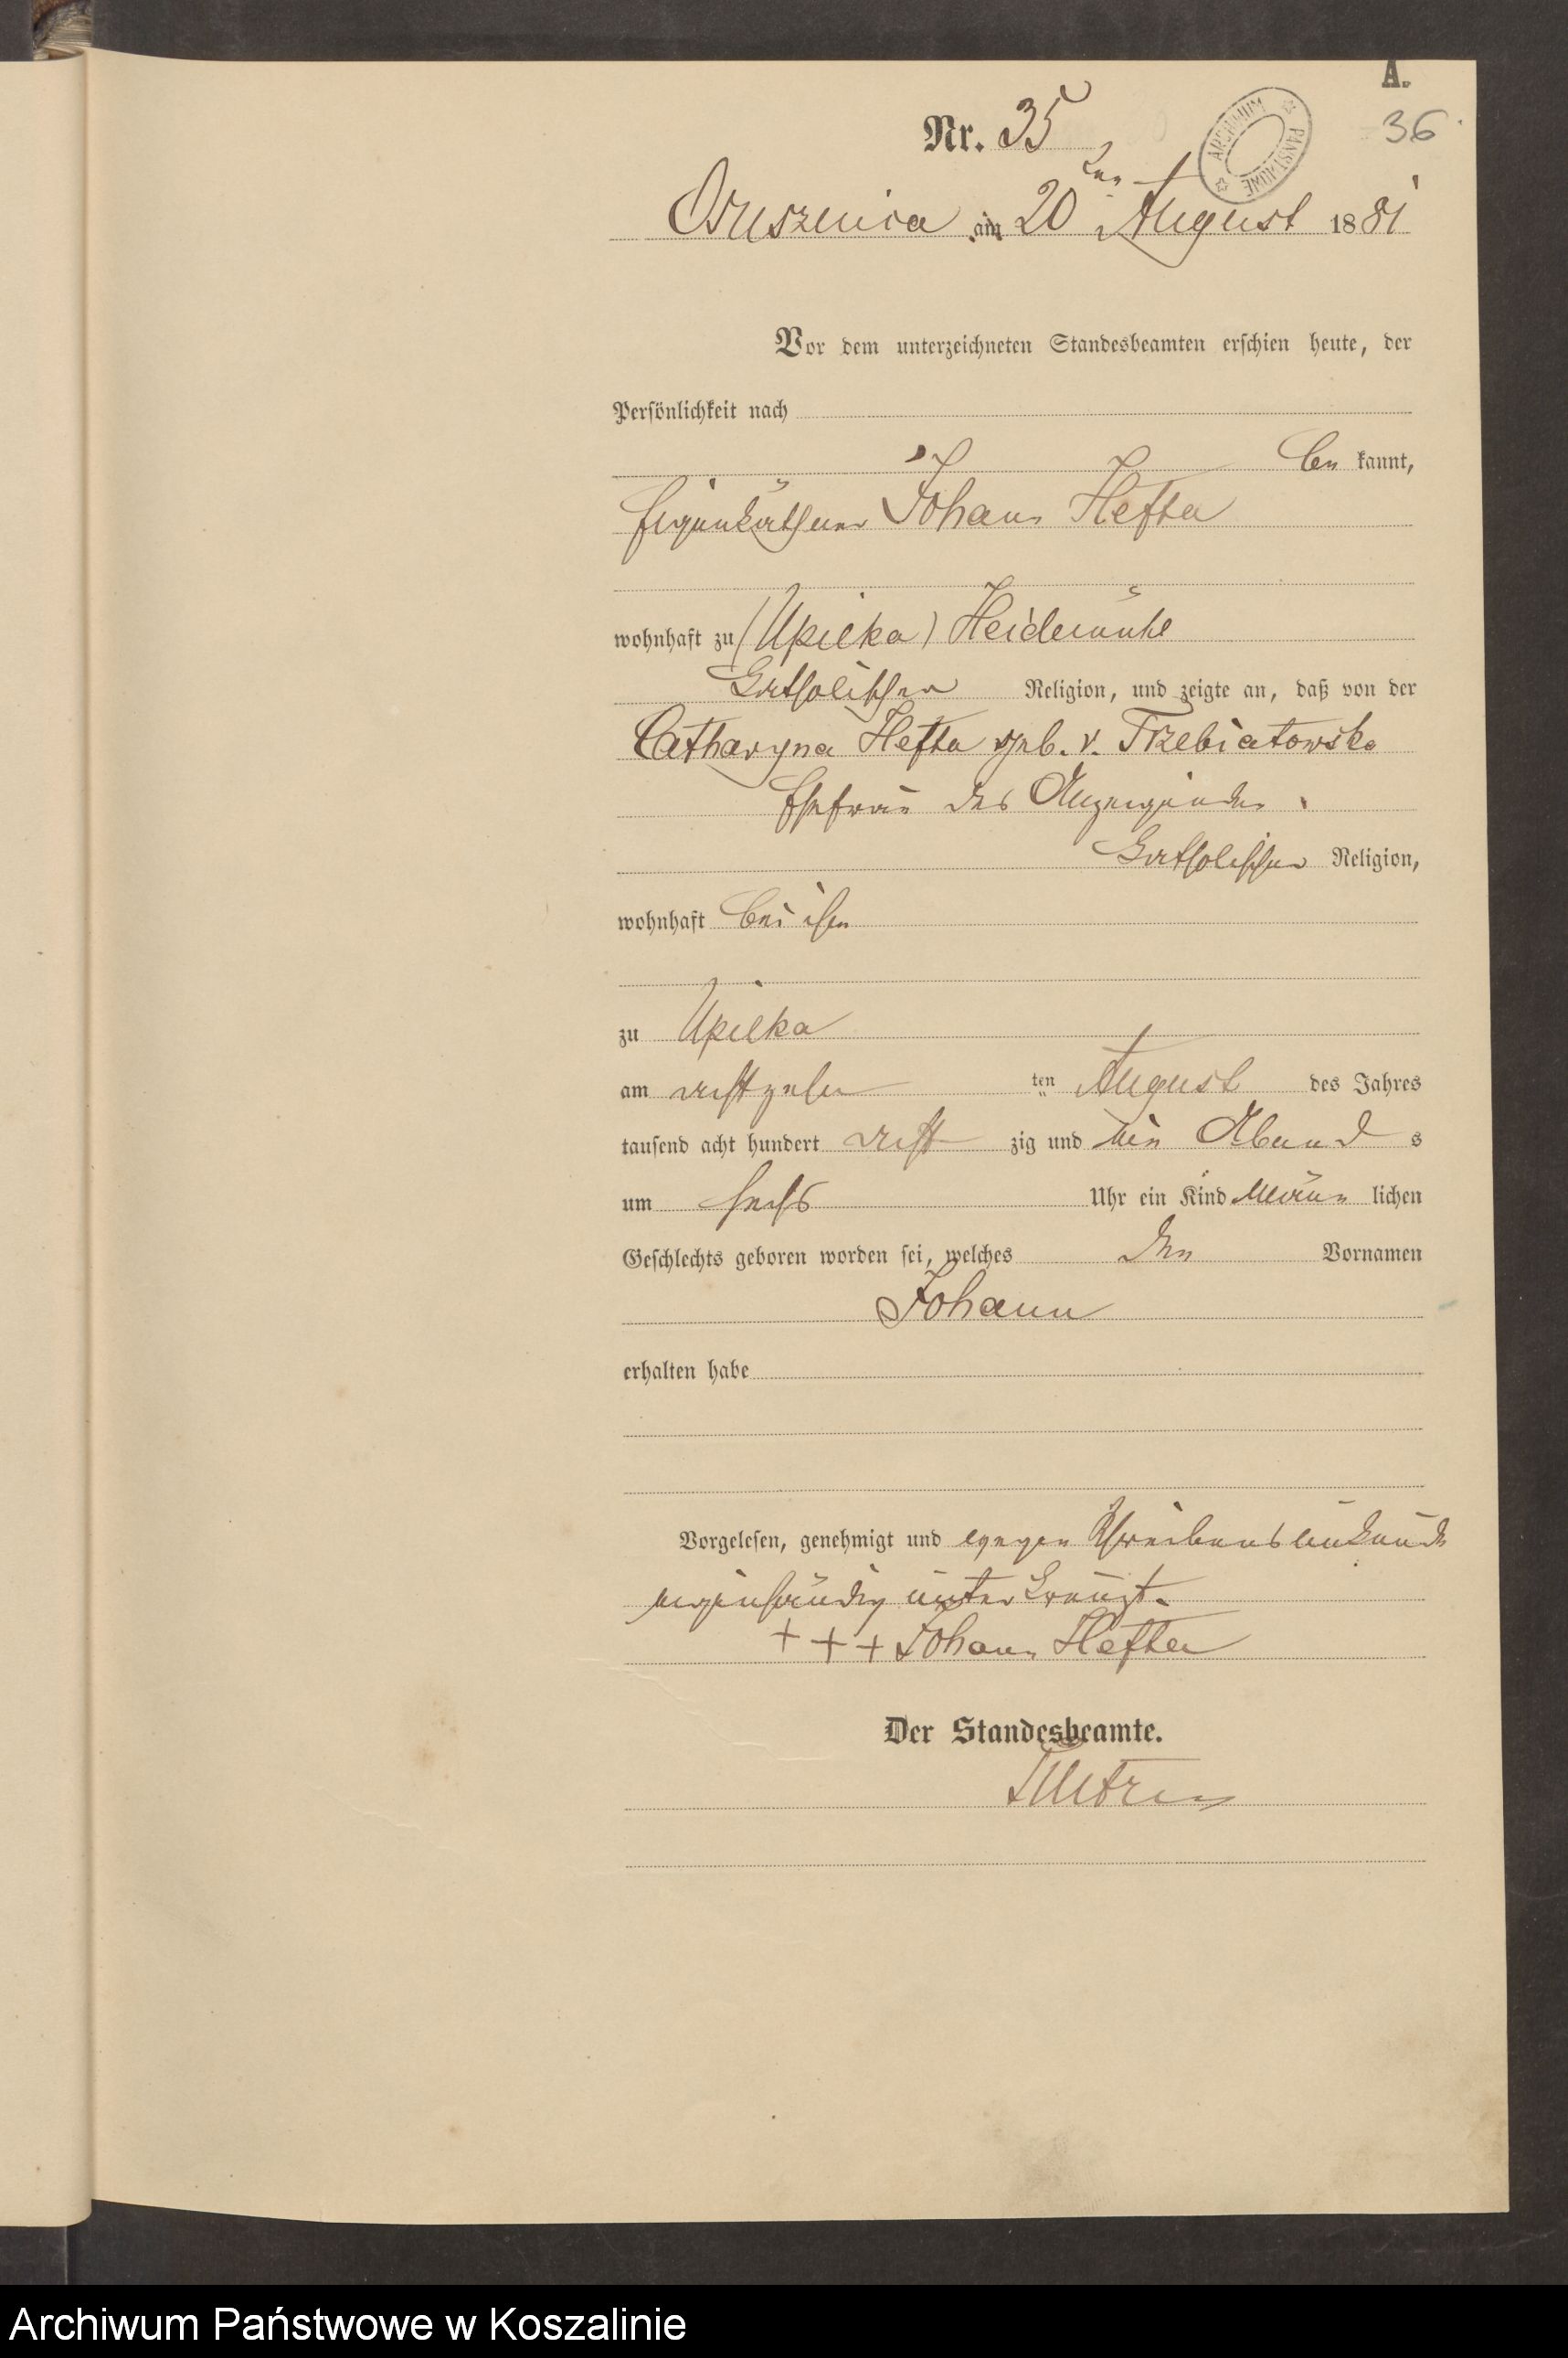 A.
Nr. 35
36
ARCHIWUM PAŃSTWOWE
ten
Osuszenica am 20 August 1881
Vor dem unterzeichneten Standesbeamten erschien heute, der
Persönlichkeit nach
be kannt,
Eigenkäthner Johann Hefta
wohnhaft zu (Upilka) Heidemühl
katholischer Religion, und zeigte an, daß von der
Catharyna Hefta geb. v. Trzebiatowska
Ehefrau des Anzeigenden
katholischer Religion,
wohnhaft bei ihm
zu Upilka
am achtzehn ten August des Jahres
tausend acht hundert acht zig und ein Abend s
um sechs Uhr ein Kind männ lichen
Geschlechts geboren worden sei, welches den Vornamen
Johann
erhalten habe
Vorgelesen, genehmigt und wegen Schreibensunkunde
eigenhändig unterkreuzt.
+ + + Johann Hefta
Der Standesbeamte.
Archiwum Państwowe w Koszalinie